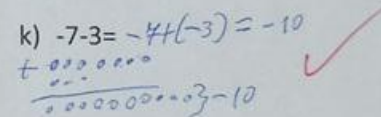 k) -7-3= -7+(-3) = -10
+
}-10